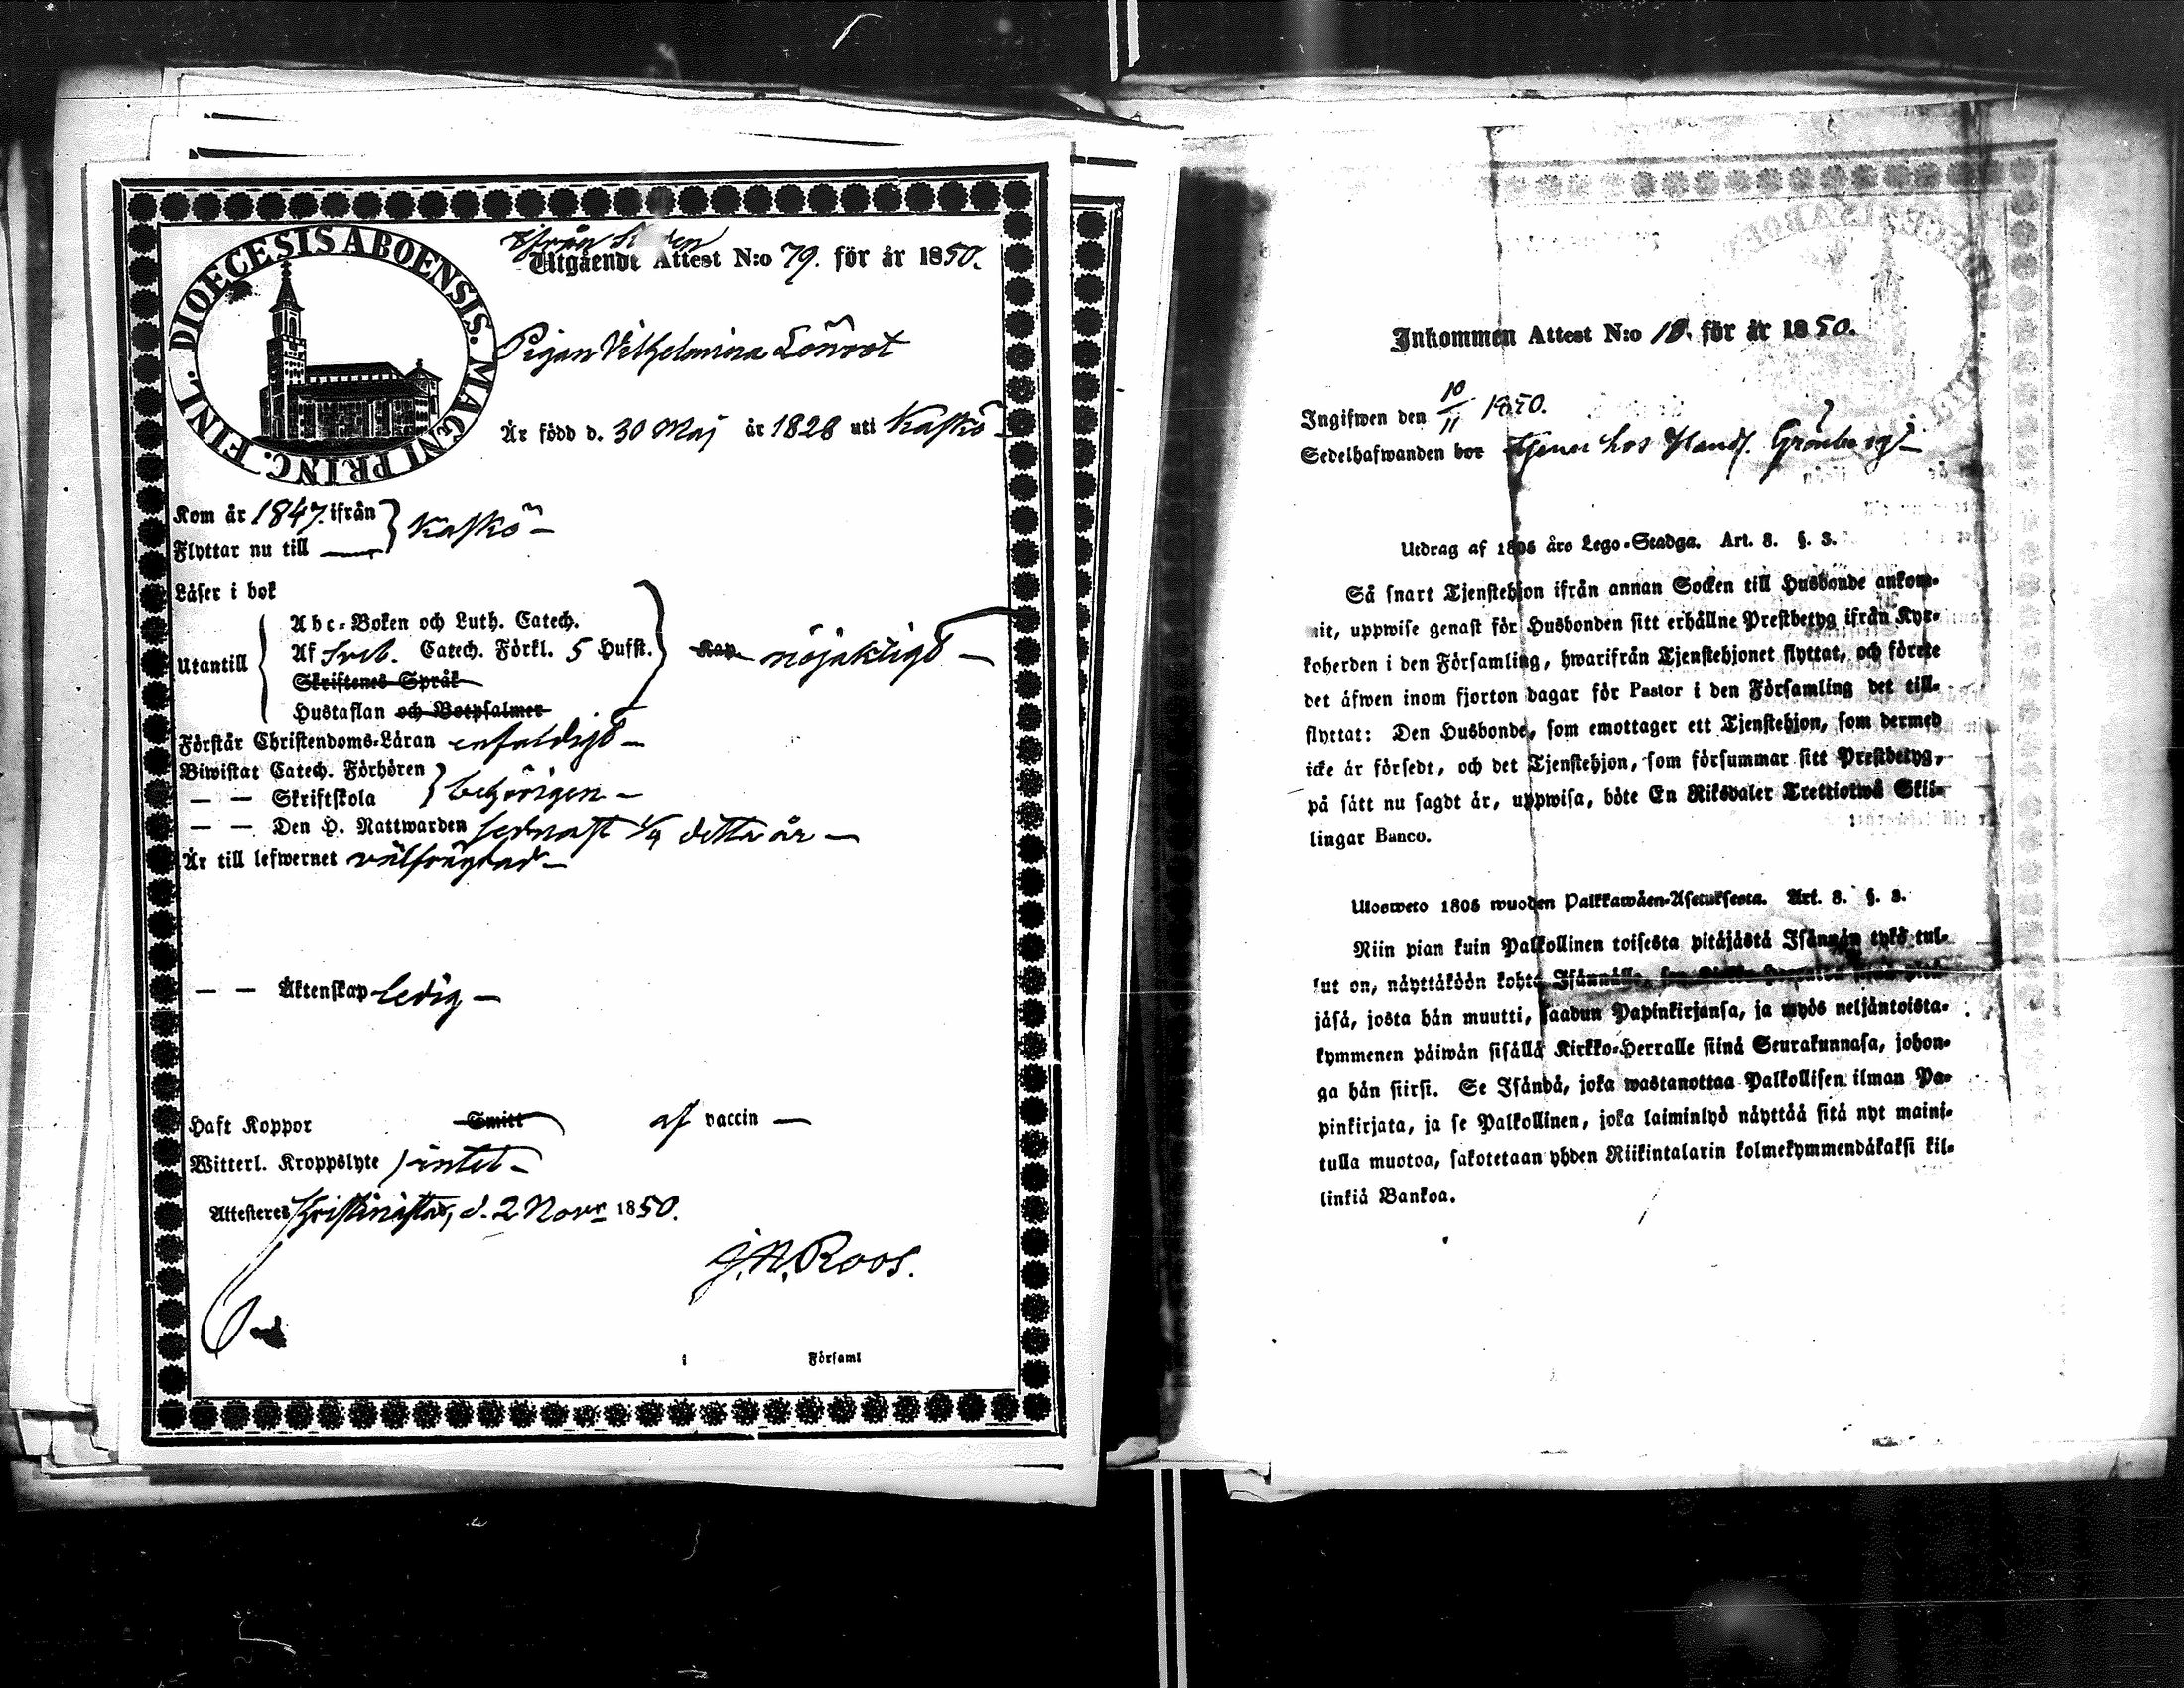 DIOECESIS ABOENSIS. MAGNI PRINC. FINL.
ifrån
Utgående Attest N:o 79. för år 1850.
Pigan Vilhelmina Lönrot
Är född d. 30 Maj år 1828 uti Kaskö
Kom år 1847. ifrån
Flyttar nu till
Kaskö
Läser i bok
Utantill
Abc-Boken och Luth. Catech.
Af Sveb. Catech. Förkl. 5 Hufst.
Skriftenes Språk
Hustaflan och Botpsalmer
Kap nöjaktigt
Förstår Christendoms-Läran enfaldigt
Biwistat Catech. Förhören
— — Skriftskola
behörigen
— — Den H. Nattwarden sednast 1/9 detta år
Är till lefwernet välfrägdad
— — Äktenskap ledig
Haft Koppor Smitt af vaccin
Witterl. Kroppslyte intet
Attesteres Kristinestad, d. 2 Novr 1850.
J. N. Roos.
i Församl
Inkommen Attest N:o 18. för år 1850.
Ingifwen den 10/11 1850.
Sedelhafwanden bor tjenar hos Handl. Grönberg
Utdrag af 1805 års Lego-Stadga. Art. 8. §. 3.
Så snart Tjenstehjon ifrån annan Socken till Husbonde ankom-
mit, uppwise genast för Husbonden sitt erhållne Prestbetyg ifrån Kyr-
koherden i den Församling, hwarifrån Tjenstehjonet flyttat, och förete
det äfwen inom fjorton dagar för Pastor i den Församling det till-
flyttat: Den Husbonde, som emottager ett Tjenstehjon, som dermed
icke är försedt, och det Tjenstehjon, som försummar sitt Prestbetyg,
på sätt nu sagdt är, uppwisa, böte En Riksdaler Trettiotwå Skil-
lingar Banco.
Ulosweto 1805 wuoden Palkkawäen-Asetuksesta. Art. 8. §. 3.
Niin pian kuin Palkollinen toisesta pitäjästä Isännän tykö tul-
lut on, näyttäköön kohta Isännälle,
jäsä, josta hän muutti, saadun Papinkirjansa, ja myös neljäntoista-
kymmenen päiwän sisällä Kirkko-Herralle siinä Seurakunnasa, johon-
ga hän siirsi. Se Isändä, joka wastanottaa Palkollisen ilman Pa-
pinkirjata, ja se Palkollinen, joka laiminlyö näyttää sitä nyt maini-
tulla muotoa, sakotetaan yhden Riikintalarin kolmekymmendäkaksi kil-
linkiä Bankoa.